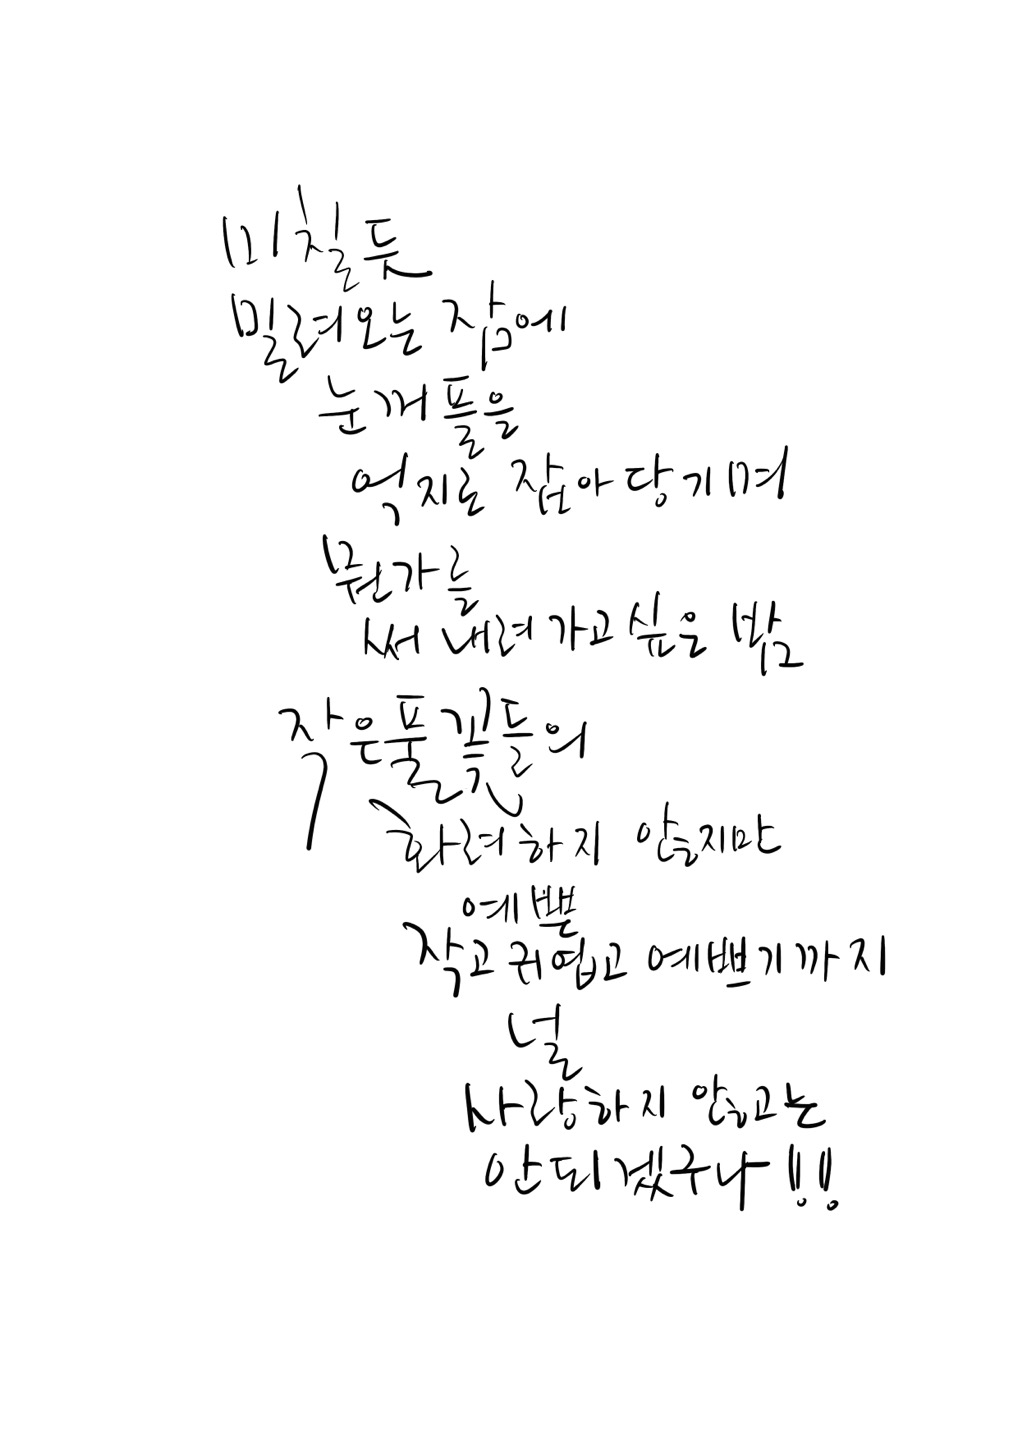 미칠듯
밀려오는 잠에
눈꺼플을
억지로 잡아당기며
뭔가를
써 내려가고싶은 밤
작은풀꽃들의
화려하지 않지만
예쁜
작고귀엽고 예쁘기까지
널
사랑하지 않고는
안되겠구나!!